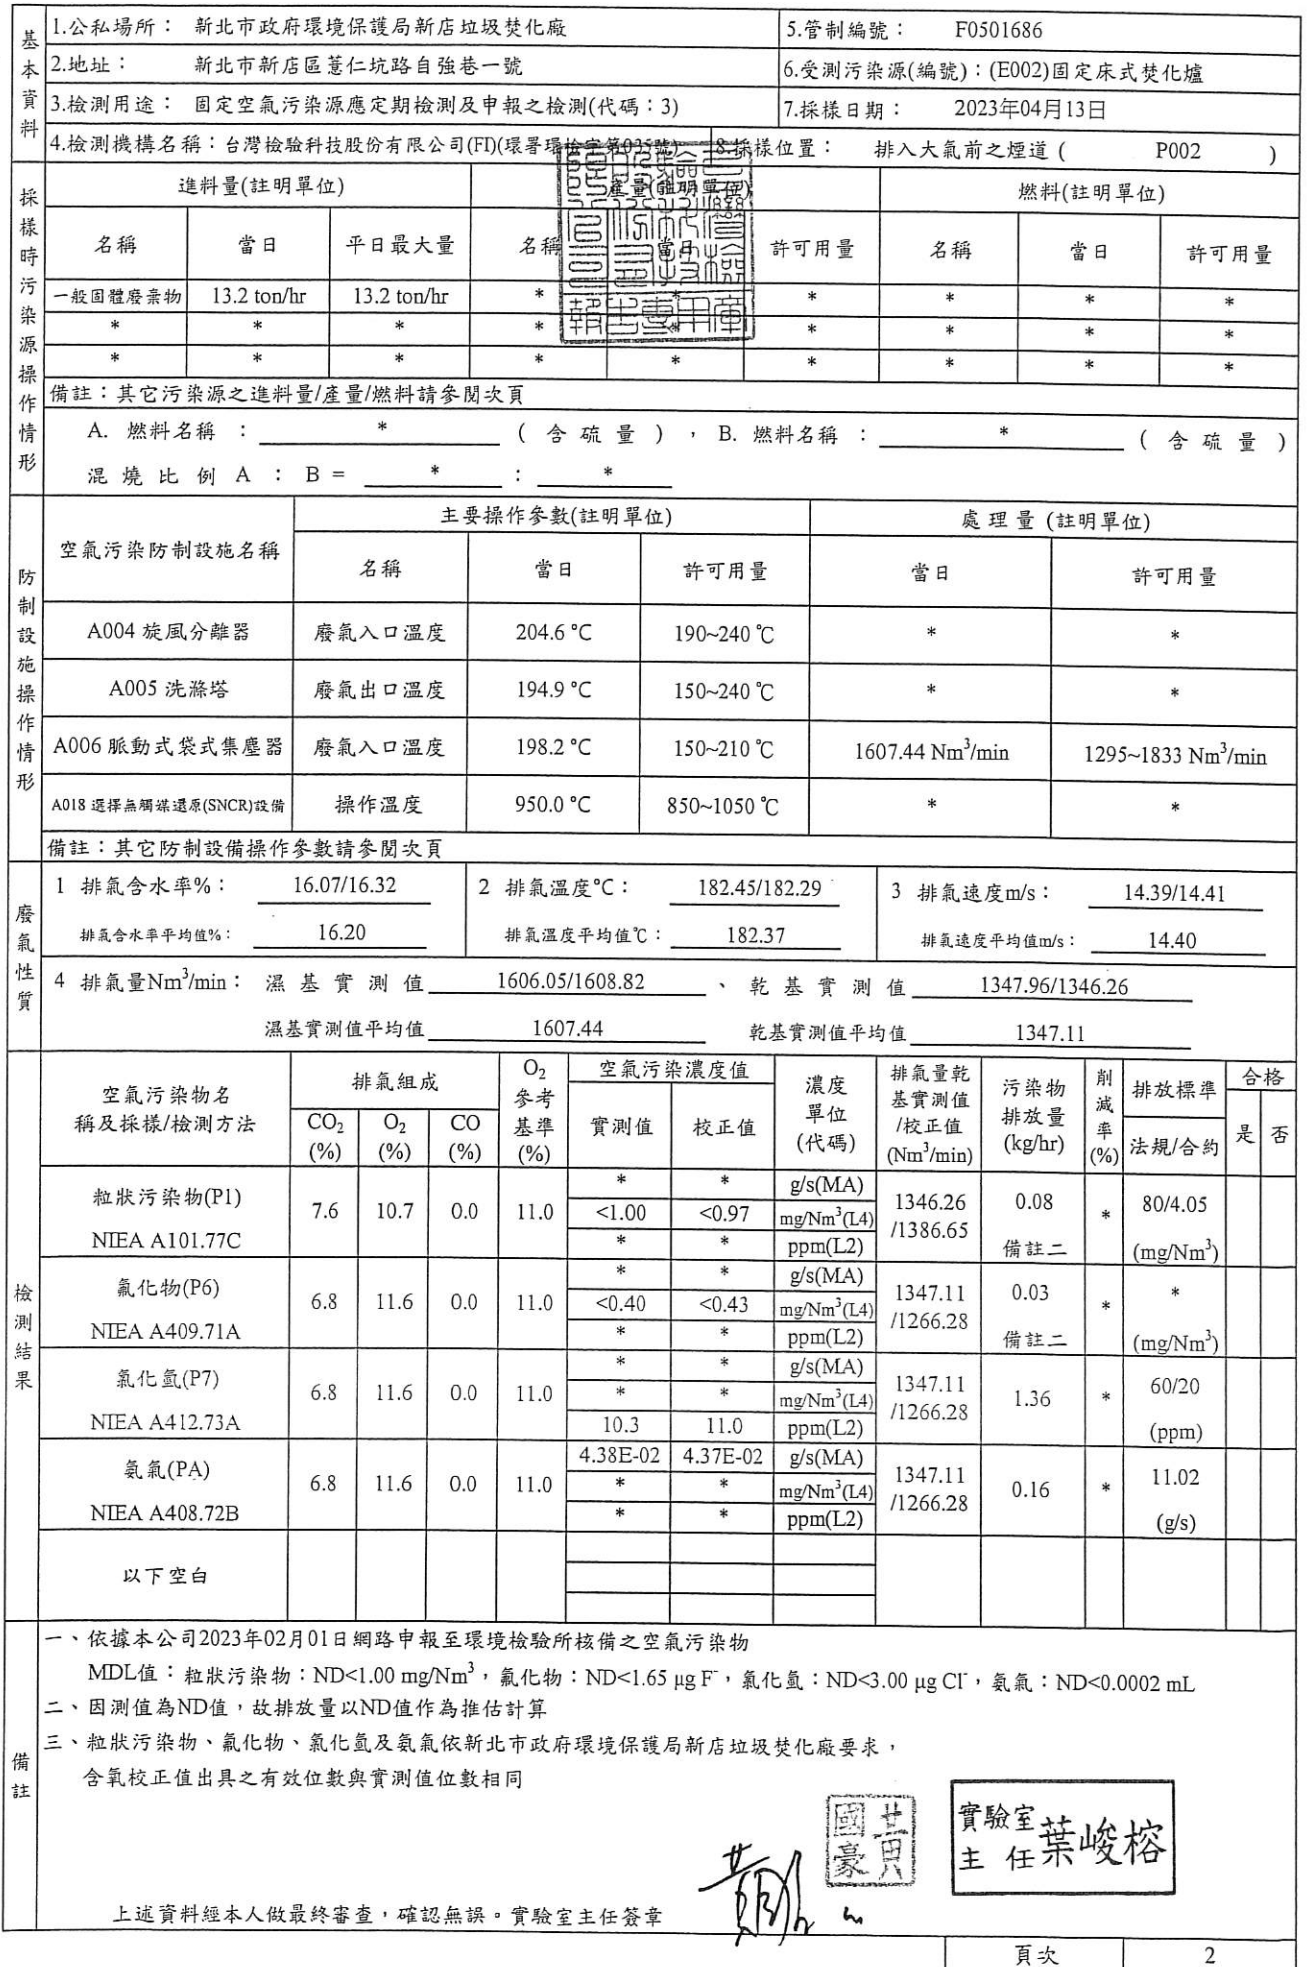 基本資料
1.公私場所： 新北市政府環境保護局新店垃圾焚化廠 5.管制編號： F0501686
2.地址： 新北市新店區薏仁坑路自強巷一號 6.受測污染源(編號)：(E002)固定床式焚化爐
3.檢測用途： 固定空氣污染源應定期檢測及申報之檢測(代碼：3) 7.採樣日期： 2023年04月13日
4.檢測機構名稱：台灣檢驗科技股份有限公司(FI)(環署環檢字第035號) 8.採樣位置： 排入大氣前之煙道( P002 )
採樣時污染源操作情形
進料量(註明單位) 產量(註明單位) 燃料(註明單位)
名稱 當日 平日最大量 名稱 當日 許可用量 名稱 當日 許可用量
一般固體廢棄物 13.2 ton/hr 13.2 ton/hr * * * * * *
* * * * * * * * *
* * * * * * * * *
備註：其它污染源之進料量/產量/燃料請參閱次頁
A. 燃料名稱 ： * ( 含硫量 )，B. 燃料名稱 ： * ( 含硫量 )
混燒比例 A ： B = * ： *
防制設施操作情形
空氣污染防制設施名稱 主要操作參數(註明單位) 處理量(註明單位)
名稱 當日 許可用量 當日 許可用量
A004 旋風分離器 廢氣入口溫度 204.6 °C 190~240 ℃ * *
A005 洗滌塔 廢氣出口溫度 194.9 °C 150~240 ℃ * *
A006 脈動式袋式集塵器 廢氣入口溫度 198.2 °C 150~210 ℃ 1607.44 Nm³/min 1295~1833 Nm³/min
A018 選擇無觸媒還原(SNCR)設備 操作溫度 950.0 °C 850~1050 ℃ * *
備註：其它防制設備操作參數請參閱次頁
廢氣性質
1 排氣含水率%： 16.07/16.32 2 排氣溫度°C： 182.45/182.29 3 排氣速度m/s： 14.39/14.41
排氣含水率平均值%： 16.20 排氣溫度平均值℃： 182.37 排氣速度平均值m/s： 14.40
4 排氣量Nm³/min： 濕基實測值 1606.05/1608.82 、 乾基實測值 1347.96/1346.26
濕基實測值平均值 1607.44 乾基實測值平均值 1347.11
檢測結果
空氣污染物名稱及採樣/檢測方法 排氣組成 O₂參考基準(%) 空氣污染濃度值 濃度單位(代碼) 排氣量乾基實測值/校正值(Nm³/min) 污染物排放量(kg/hr) 削減率(%) 排放標準 合格
CO₂(%) O₂(%) CO(%) 實測值 校正值 法規/合約 是 否
粒狀污染物(P1) * * g/s(MA)
7.6 10.7 0.0 11.0 <1.00 <0.97 mg/Nm³(L4) 1346.26/1386.65 0.08 備註二 * 80/4.05 (mg/Nm³)
NIEA A101.77C * * ppm(L2)
氟化物(P6) * * g/s(MA)
6.8 11.6 0.0 11.0 <0.40 <0.43 mg/Nm³(L4) 1347.11/1266.28 0.03 備註二 * * (mg/Nm³)
NIEA A409.71A * * ppm(L2)
氯化氫(P7) * * g/s(MA)
6.8 11.6 0.0 11.0 * * mg/Nm³(L4) 1347.11/1266.28 1.36 * 60/20 (ppm)
NIEA A412.73A 10.3 11.0 ppm(L2)
氨氣(PA) 4.38E-02 4.37E-02 g/s(MA)
6.8 11.6 0.0 11.0 * * mg/Nm³(L4) 1347.11/1266.28 0.16 * 11.02 (g/s)
NIEA A408.72B * * ppm(L2)
以下空白
備註
一、依據本公司2023年02月01日網路申報至環境檢驗所核備之空氣污染物
MDL值：粒狀污染物：ND<1.00 mg/Nm³，氟化物：ND<1.65 μg F⁻，氯化氫：ND<3.00 μg Cl⁻，氨氣：ND<0.0002 mL
二、因測值為ND值，故排放量以ND值作為推估計算
三、粒狀污染物、氟化物、氯化氫及氨氣依新北市政府環境保護局新店垃圾焚化廠要求，
含氧校正值出具之有效位數與實測值位數相同
黃國豪
實驗室主任葉峻榕
上述資料經本人做最終審查，確認無誤。實驗室主任簽章
頁次 2